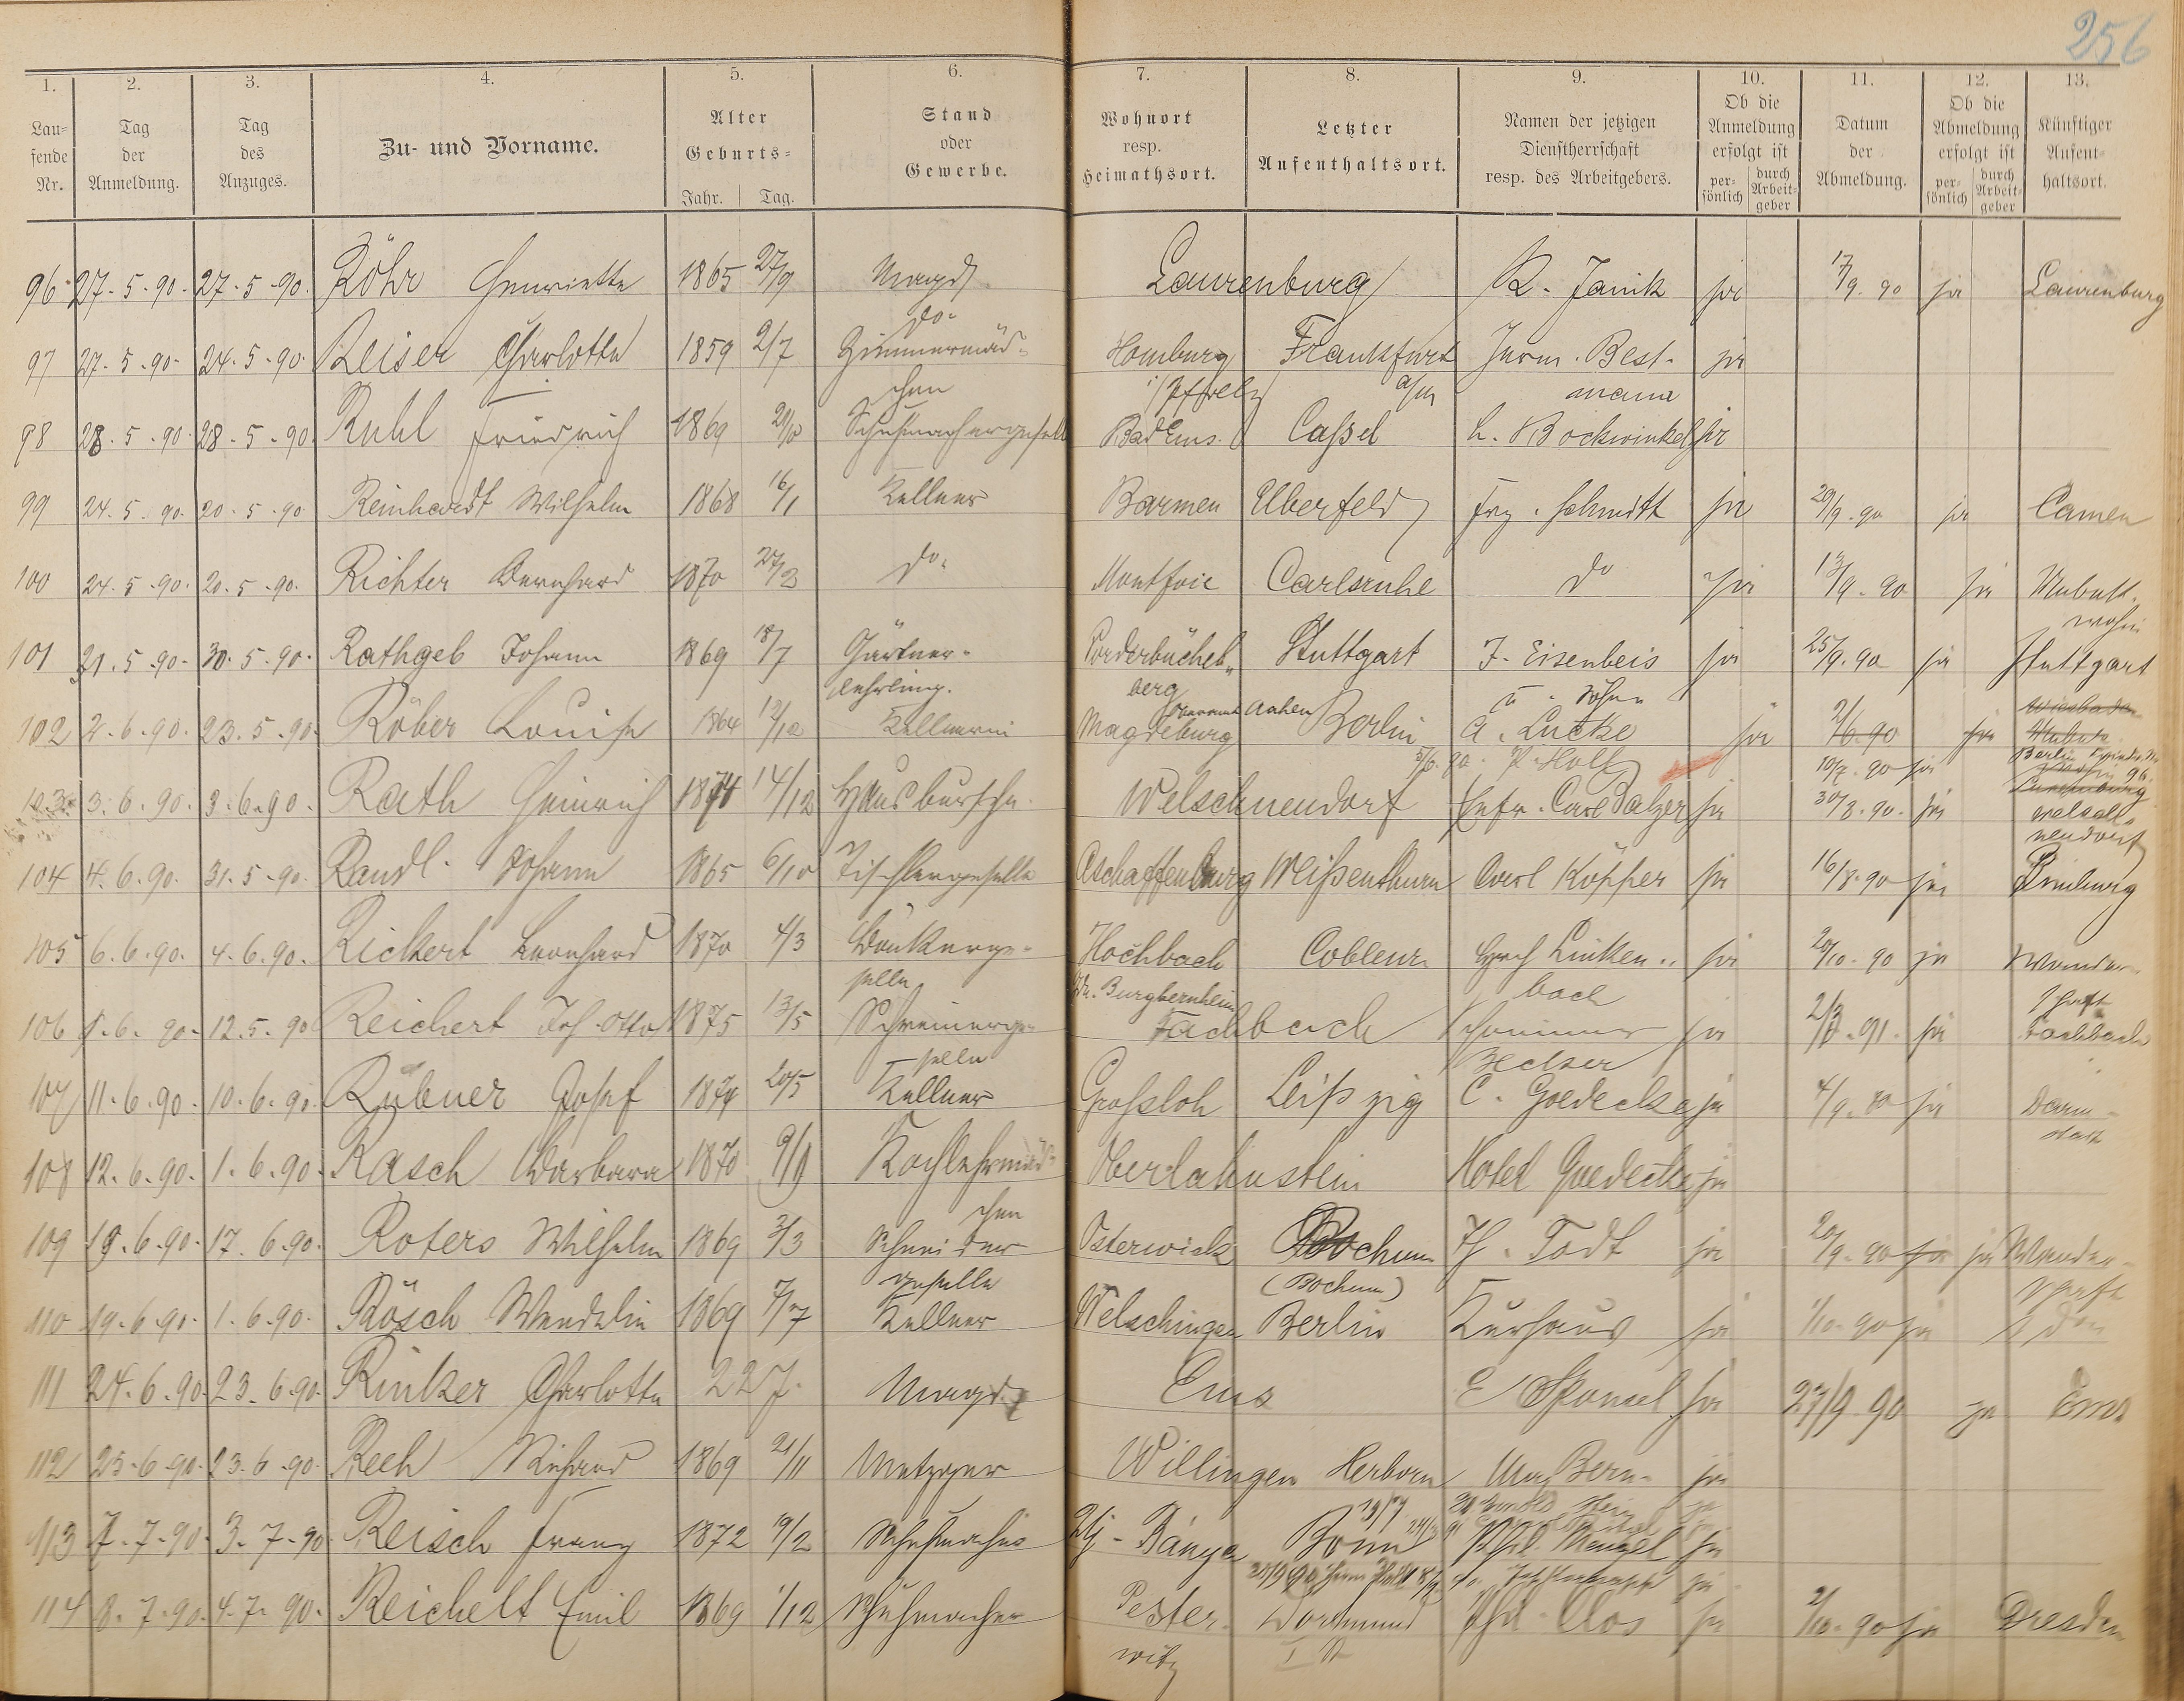 256
1. 2. 3. 4. 5. 6. 7. 8. 9. 10. 11. 12. 13.
Lau=
fende
Nr.
Tag
der
Anmeldung.
Tag
des
Anzuges.
Zu- und Vorname.
Alter
Geburts=
Jahr. Tag.
Stand
oder
Gewerbe.
Wohnort
resp.
Heimathsort.
Letzter
Aufenthaltsort.
Namen der jetzigen
Dienstherrschaft
resp. des Arbeitgebers.
Ob die
Anmeldung
erfolgt ist
per=
sönlich
durch
Arbeit=
geber
Datum
der
Abmeldung.
Ob die
Abmeldung
erfolgt ist
per=
sönlich
durch
Arbeit=
geber
Künftiger
Aufent=
haltsort.
96 27.5.90. 27.5.90. Röhr Henriette 1865 27/9 Magd Laurenburg R. Janik ja 17/9.90 ja Laurenburg
97 27.5.90. 24.5.90. Reiser Charlotte 1859 2/7 do. Zimmermäd=
chen Homburg i/Pfalz Frankfurt a/M Best=
mann ja
98 28.5.90. 28.5.90. Ruhl Friedrich 1869 Schuhmachergeselle Bad Ems. Caßel L. Bockwinkel ja
99 24.5.90. 20.5.90. Reinhardt Wilhelm 1868 16/1 Kellner Barmen Elberfeld Frz. Schmitt ja 29/9.90 ja Camen
100 24.5.90. 20.5.90. Richter Bernhard 1870 27/2 do. Montjoie Carlsruhe do ja 13/9.90 ja Unbekt.
wohin
101 21.5.90. 30.5.90. Rathgeb Johann 1869 18/7 Gärtner=
lehrling. Vorderbüchel=
berg Stuttgart J. Eisenbeis
u. Sohn ja 25/9.90 ja Stuttgart
102 2.6.90. 23.5.90. Röber Louise 1864 12/12 Kellnerin Magdeburg Aachen Berlin A. Lucke ja 2/6.90 ja Wiesbaden
10/7.90 ja Berlin
103. 3.6.90. 3.6.90. Rath Heinrich 1874 14/12 Hausbursche Welschneudorf Carl Balzer ja 30/8.90. ja Welsch=
neudorf
104 4.6.90. 31.5.90. Randl Johann 1865 6/10 Tischlergeselle Aschaffenburg Weißenthurm Carl Küpper ja 16/8.90 ja Limburg
105 6.6.90. 4.6.90. Rickert Leonhard 1870 4/3 Bäckerge=
selle Hochbach
Burgbernheim Coblenz Linken=
bach ja 20/10.90 ja Wander=
schaft
106 6.90. 12.5.90 Reichert Joh. Otto 1875 13/5 Schreinerge=
selle Fachbach Schreiner
Becker ja 91. ja Fachbach
107 11.6.90. 10.6.90. Rübner Josef 1874 20/5 Kellner Großsloh Leipzig C. Goedecke ja 4/9.90 ja Darm=
stadt
108 12.6.90. 1.6.90. Rasch Barbara 1870 9/9 Kochlehrmäd=
chen Oberlahnstein Hotel Goedecke ja
109 19.6.90. 17.6.90. Roters Wilhelm 1869 3/3 Schneider
geselle Osterwick Bochum
(Bochum) H. Todt ja 20/9.90 ja ja Wander=
schaft
110 19.6.90. 1.6.90. Rösch Wendelin 1869 7/7 Kellner Welschingen Berlin Kurhaus ja 1/10.90 ja
111 24.6.90. 23.6.90. Rinker Charlotte 22 J. Magd Ems E Sponsel ja 27/9 90 ja Ems
112 25.6.90. 23.6.90. Rech Richard 1869 21/11 Metzger Willingen Herborn Bern. ja
113 7.7.90. 3.7.90. Reisch Franz 1872 9/2 Schuhmacher Uj-Bánya Bonn Phil. Menzel ja
114 8.7.90. 4.7.90. Reichelt Emil 1869 1/12 Schuhmacher Pester=
witz Dortmund Phil. Clos ja 2/10.90 ja Dresden